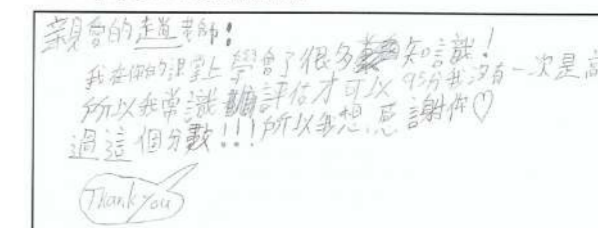 親會的趙老師!
我在你的課堂上學會了很多知識!
所以我常識評估才可以95分我沒有一次是高
過這個分數!!!所以我想感謝你♡
Thank you